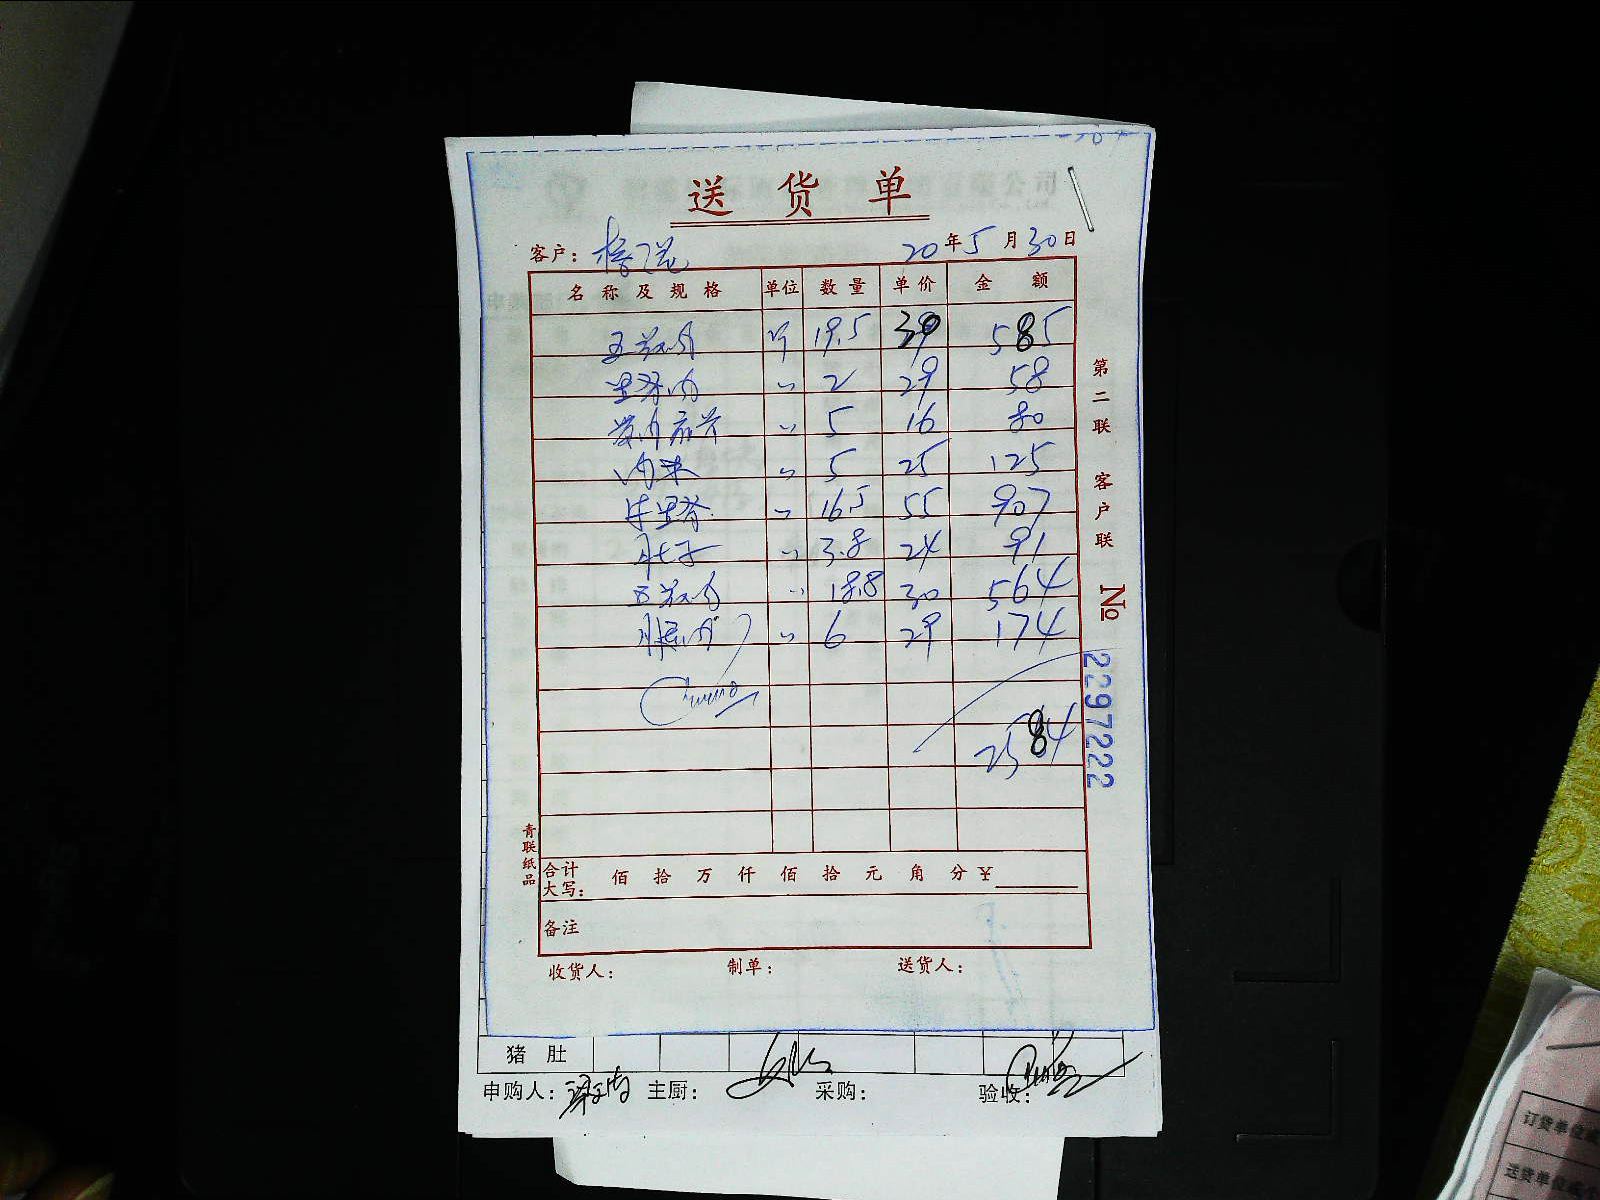 送货单
客户： 20年5月30日
名称及规格 单位 数量 单价 金额
五花肉 斤 19.5 30 585
里脊肉 〃 2 29 58
〃 5 16 80
肉末 〃 5 25 125
牛里脊 〃 16.5 55 907
肚子 〃 3.8 24 91
五花肉 〃 18.8 30 564
腿肉 〃 6 29 174
2584
合计大写： 佰 拾 万 仟 佰 拾 元 角 分 ¥
备注
收货人： 制单： 送货人：
第二联 客户联
№ 2297222
青联纸品
猪肚
申购人： 主厨： 采购： 验收：
订货单位
送货单位